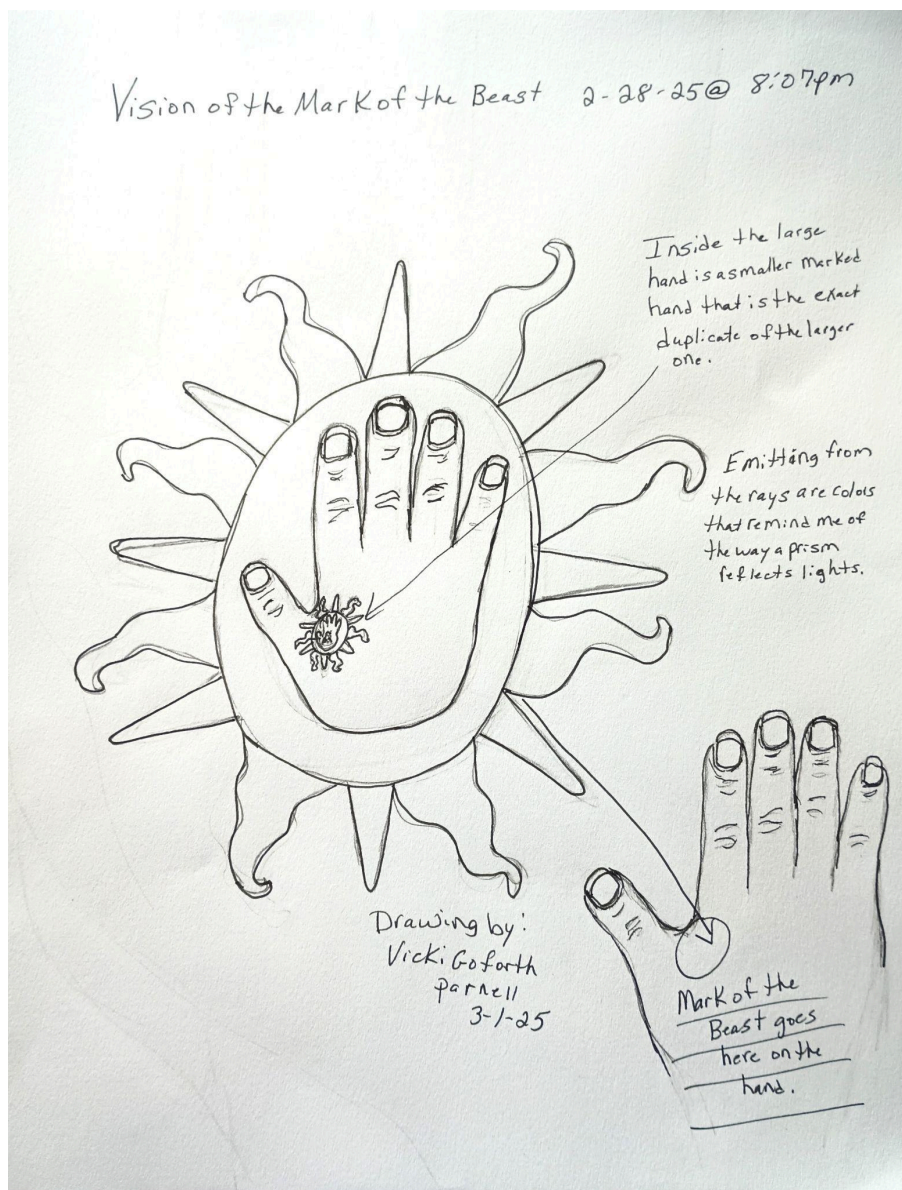 Vision of the Mark of the Beast 2-28-25@ 8:07pm
Inside the large
hand is a smaller marked
hand that is the exact
duplicate of the larger
one.
Emitting from
the rays are colors
that remind me of
the way a prism
reflects lights.
Drawing by:
Vicki Goforth
Parnell
3-1-25
Mark of the
Beast goes
here on the
hand.